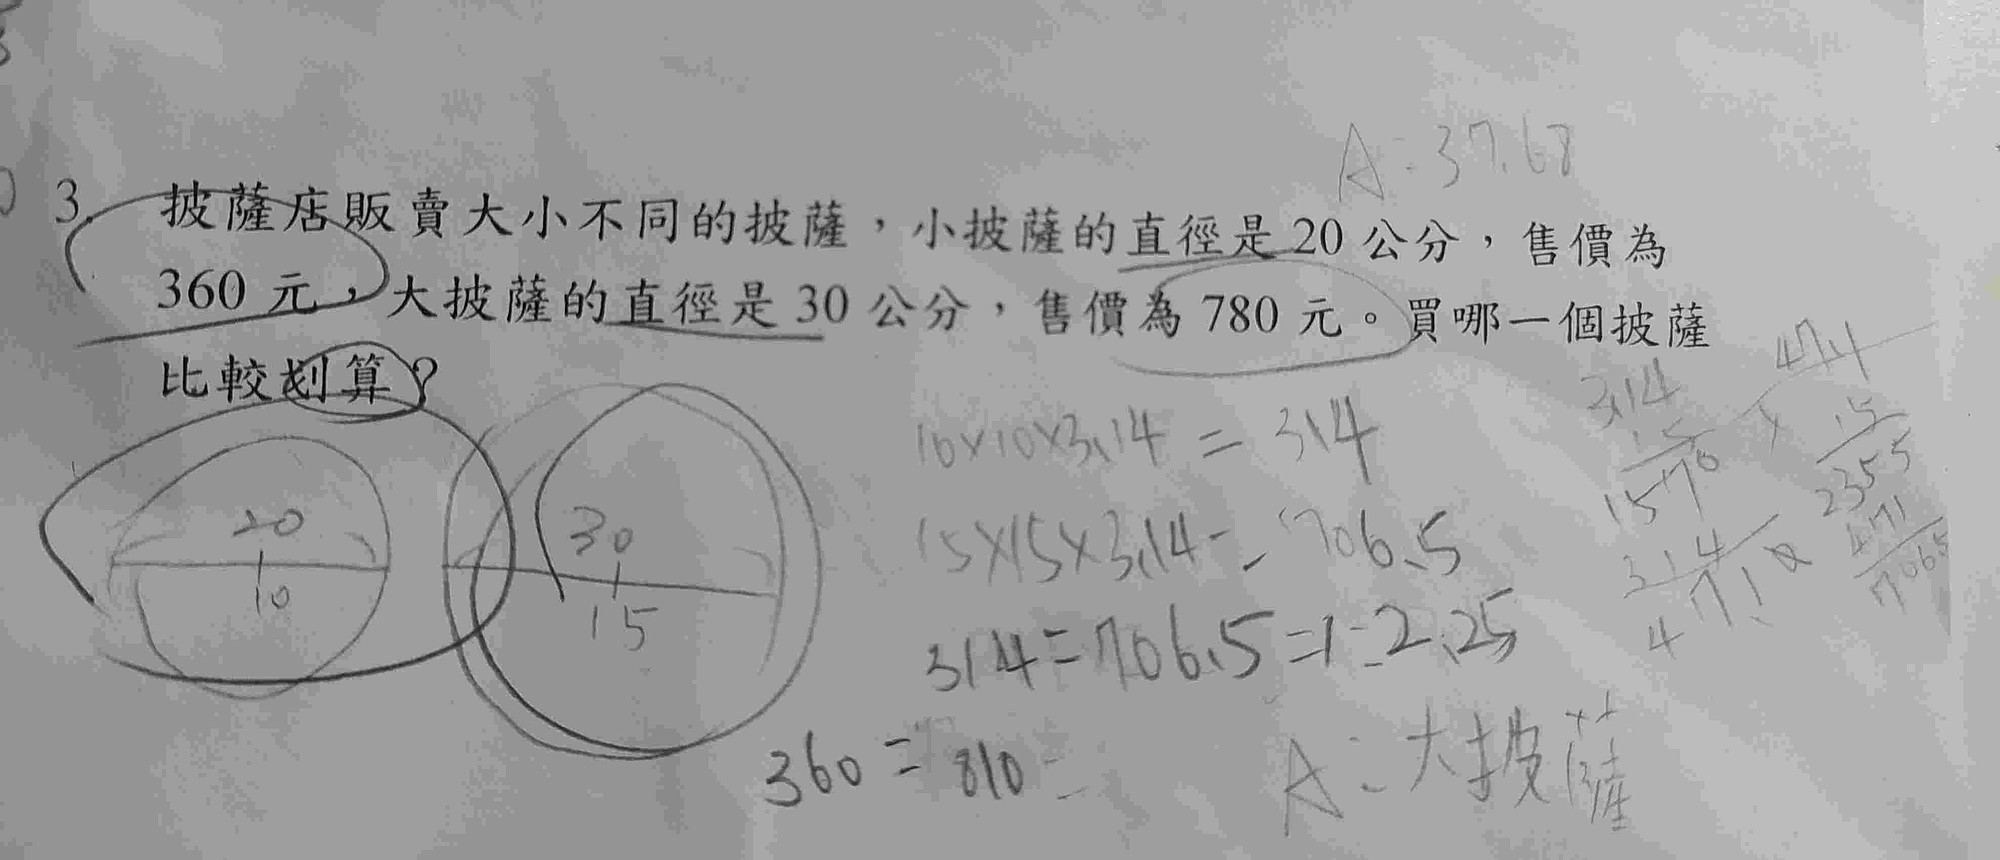 A:37.68
3. 披薩店販賣大小不同的披薩，小披薩的直徑是 20 公分，售價為
360 元，大披薩的直徑是 30 公分，售價為 780 元。買哪一個披薩
比較划算？
20
10
30
15
10×10×3.14 = 314
15×15×3.14 = 706.5
314:706.5=1:2.25
360 = 810
A:大披薩
3.14
15
1570
314
4710
471
× 15
2355
471
7065